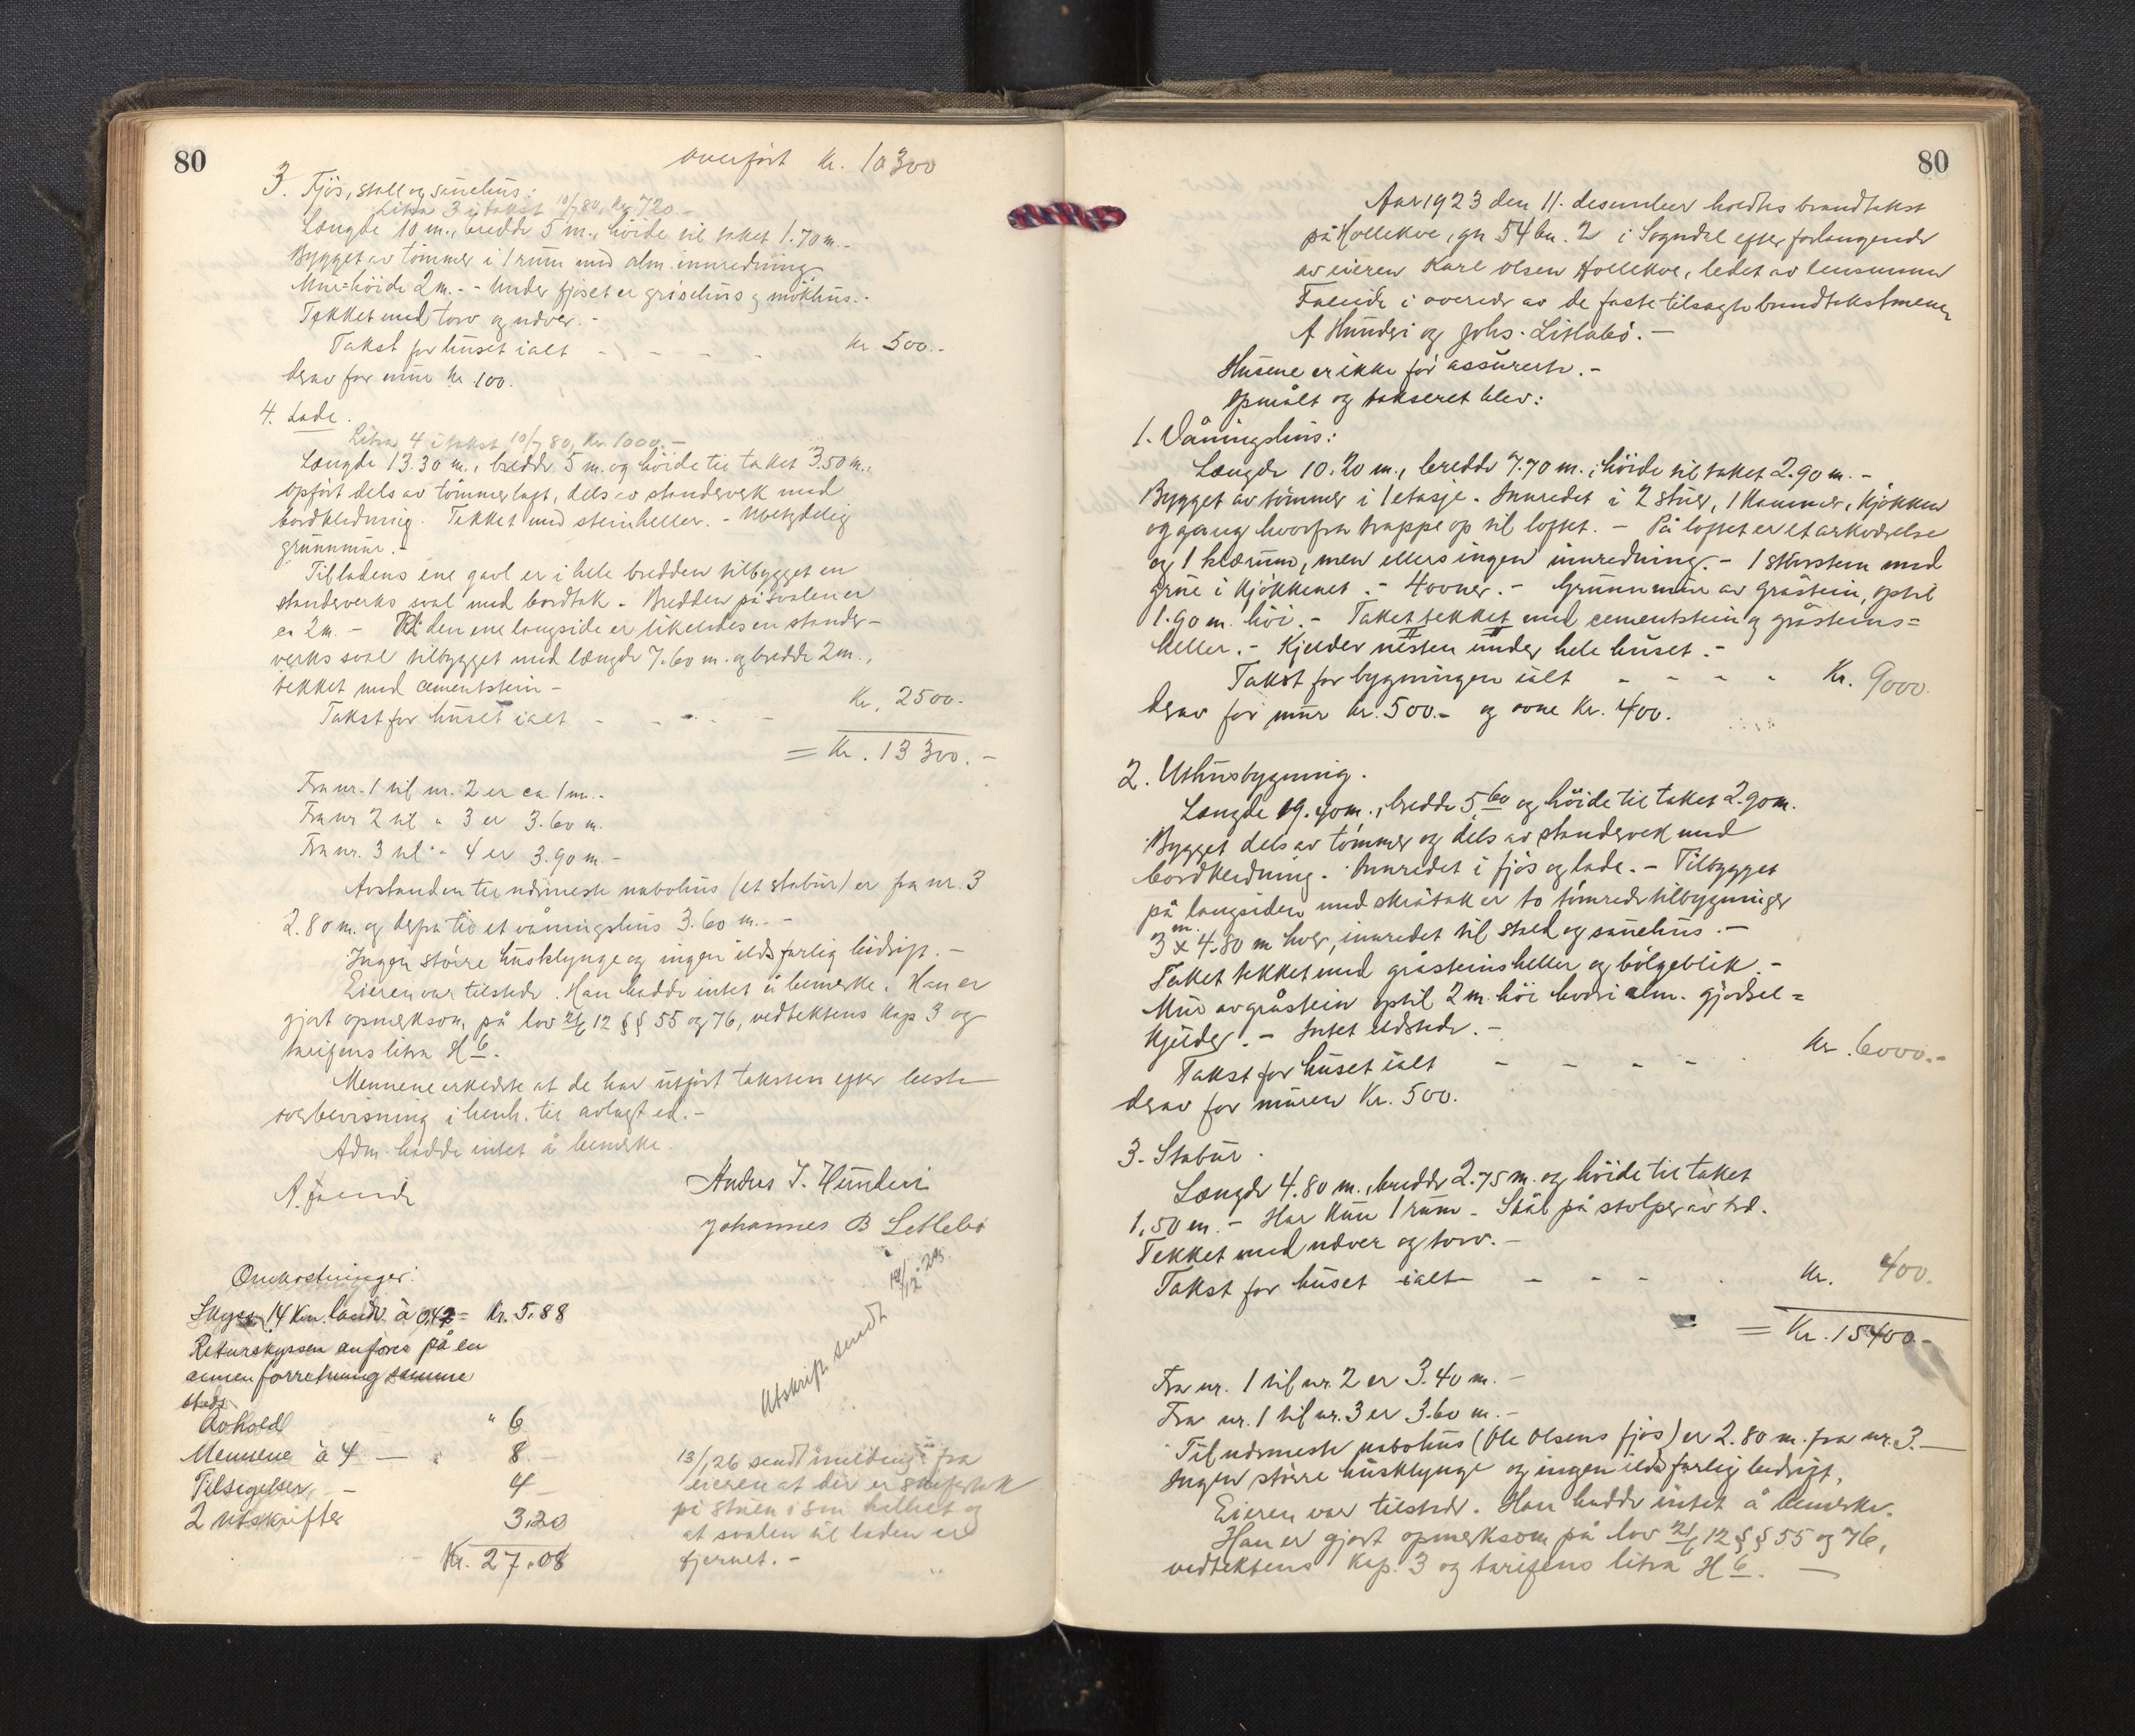 80
overført Kr. 10300
3. Fjös, stall og sauehus:
Litra 3 i takst 10/7 80, Kr. 720.-
Længde 10 m., bredde 5 m., höide til taket 1.70 m.-
Bygget av tömmer i 1 rum med alm. innredning.
Mur=höide 2 m. - Under fjöset er grisehus og mökhus.-
Tekket med torv og næver.-
Takst for huset ialt - - - - Kr 500.-
derav for mur Kr. 100.
4. Lade.
Litra 4 i takst 10/7 80, Kr. 1000.-
Længde 13.30 m., bredde 5 m. og höide til taket 3.50 m.,
opfört dels av tömmerlagt, dels av standerverk med
bordklædning. Tekket med steinheller. - Ubetydelig
grunnmur.-
Til ladens ene gavl er i hele bredden tilbygget en
standerverks sval med bordtak. Bredden på svalen er
ca 2 m. - Til den ene langside er likeledes en stander-
verks sval tilbygget med længde 7.60 m. og bredde 2 m.,
tekket med cementstein -
Takst for huset ialt - - - - Kr. 2500.-
= Kr. 13300.-
Fra nr. 1 til nr. 2 er ca. 1 m.-
Fra nr 2 til " 3 er 3.60 m.
Fra nr. 3 til " 4 er 3.90 m.-
Avstanden til nærmeste nabohus (et stabur) er fra nr. 3
2.80 m. og derfra til et våningshus 3.60 m.-
Ingen större husklynge og ingen ildsfarlig bedrift.-
Eieren var tilstede. Han hadde intet å bemerke. Han er
gjort opmerksom på lov 21/6 12 §§ 55 og 76, vedtektens kap 3 og
tarifens litra H 6.
Mennene erklærte at de har utfört taksten efter beste
overbevisning i henh. til avlagt ed.-
Adm. hadde intet å bemerke.
A. Faleide
Anders I. Hundere
Johannes B Litlebö
Omkostninger:
Skyss 14 Km. landv. à 0,42 = Kr. 5.88
Returskyssen anföres på en
annen forretning samme
sted.
Avhold " 6
Mennene à 4 — " 8.-
Tilsigelser - 4 -
2 utskrifter 3.20
Kr. 27.08
Utskrift sendt 19/12 23
13/1 26 sendt melding fra
eieren at der er skifertak
på stuen i sin helhet og
at svalen til laden er
fjernet.-
80
Aar 1923 den 11. desember holdtes brandtakst
på Hollekve, gn 54 bn. 2 i Sogndal efter forlangende
av eieren Karl Olsen Hollekve, ledet av lensmann
Faleide i overvær av de faste tilsagte brandtakstmenn
A Hundri og Johs. Litlabö.-
Husene er ikke för assurert.-
Opmålt og takseret blev:
1. Våningshus:
Længde 10.20 m., bredde 7.70 m., höide til taket 2.90 m.-
Bygget av tömmer i 1 etasje. Innredet i 2 stuer, 1 kammer, kjökken
og gang hvorfra trappe op til loftet. - På loftet er et arkværelse
og 1 klærum, men ellers ingen innredning. - 1 skorstein med
grue i kjökkenet. - 4 ovner. - Grunnmur av gråstein, optil
1.90 m. höi. - Taket tekket med cementstein og gråsteins=
heller. - Kjelder nesten under hele huset.-
Takst for bygningen ialt - - - - Kr. 9000.
derav for mur Kr. 500.- og ovne Kr. 400.
2. Uthusbygning.
Længde 19.40 m., bredde 5.60 og höide til taket 2.90 m.
Bygget dels av tömmer og dels av standerverk med
bordklædning. Innredet i fjös og lade. - Tilbygget
på langsiden med skråtak er to tömrede tilbygninger
3 m. x 4.80 m hver, innredet til stall og sauehus.-
Taket tekket med gråsteinsheller og bölgeblik.-
Mur av gråstein optil 2 m. höi hvori alm. gjødsel=
kjelder. - Intet ildsted.-
Takst for huset ialt - - - - Kr. 6000.-
derav for muren Kr. 500.
3. Stabur.
Længde 4.80 m., bredde 2.75 m. og höide til taket
1,50 m. - Har kun 1 rum. Står på stolper av træ.
Tekket med næver og torv.-
Takst for huset ialt - - - - Kr. 400.
= Kr. 15400.-
Fra nr. 1 til nr. 2 er 3.40 m.-
Fra nr. 1 til nr. 3 er 3.60 m.-
Til nærmeste nabohus (Ole Olsens fjös) er 2.80 m. fra nr. 3.-
Ingen större husklynge og ingen ildsfarlig bedrift.
Eieren var tilstede. Han hadde intet å bemerke.
Han er gjort opmerksom på lov 21/6 12 §§ 55 og 76,
vedtektens kap. 3 og tarifens litra H 6. —